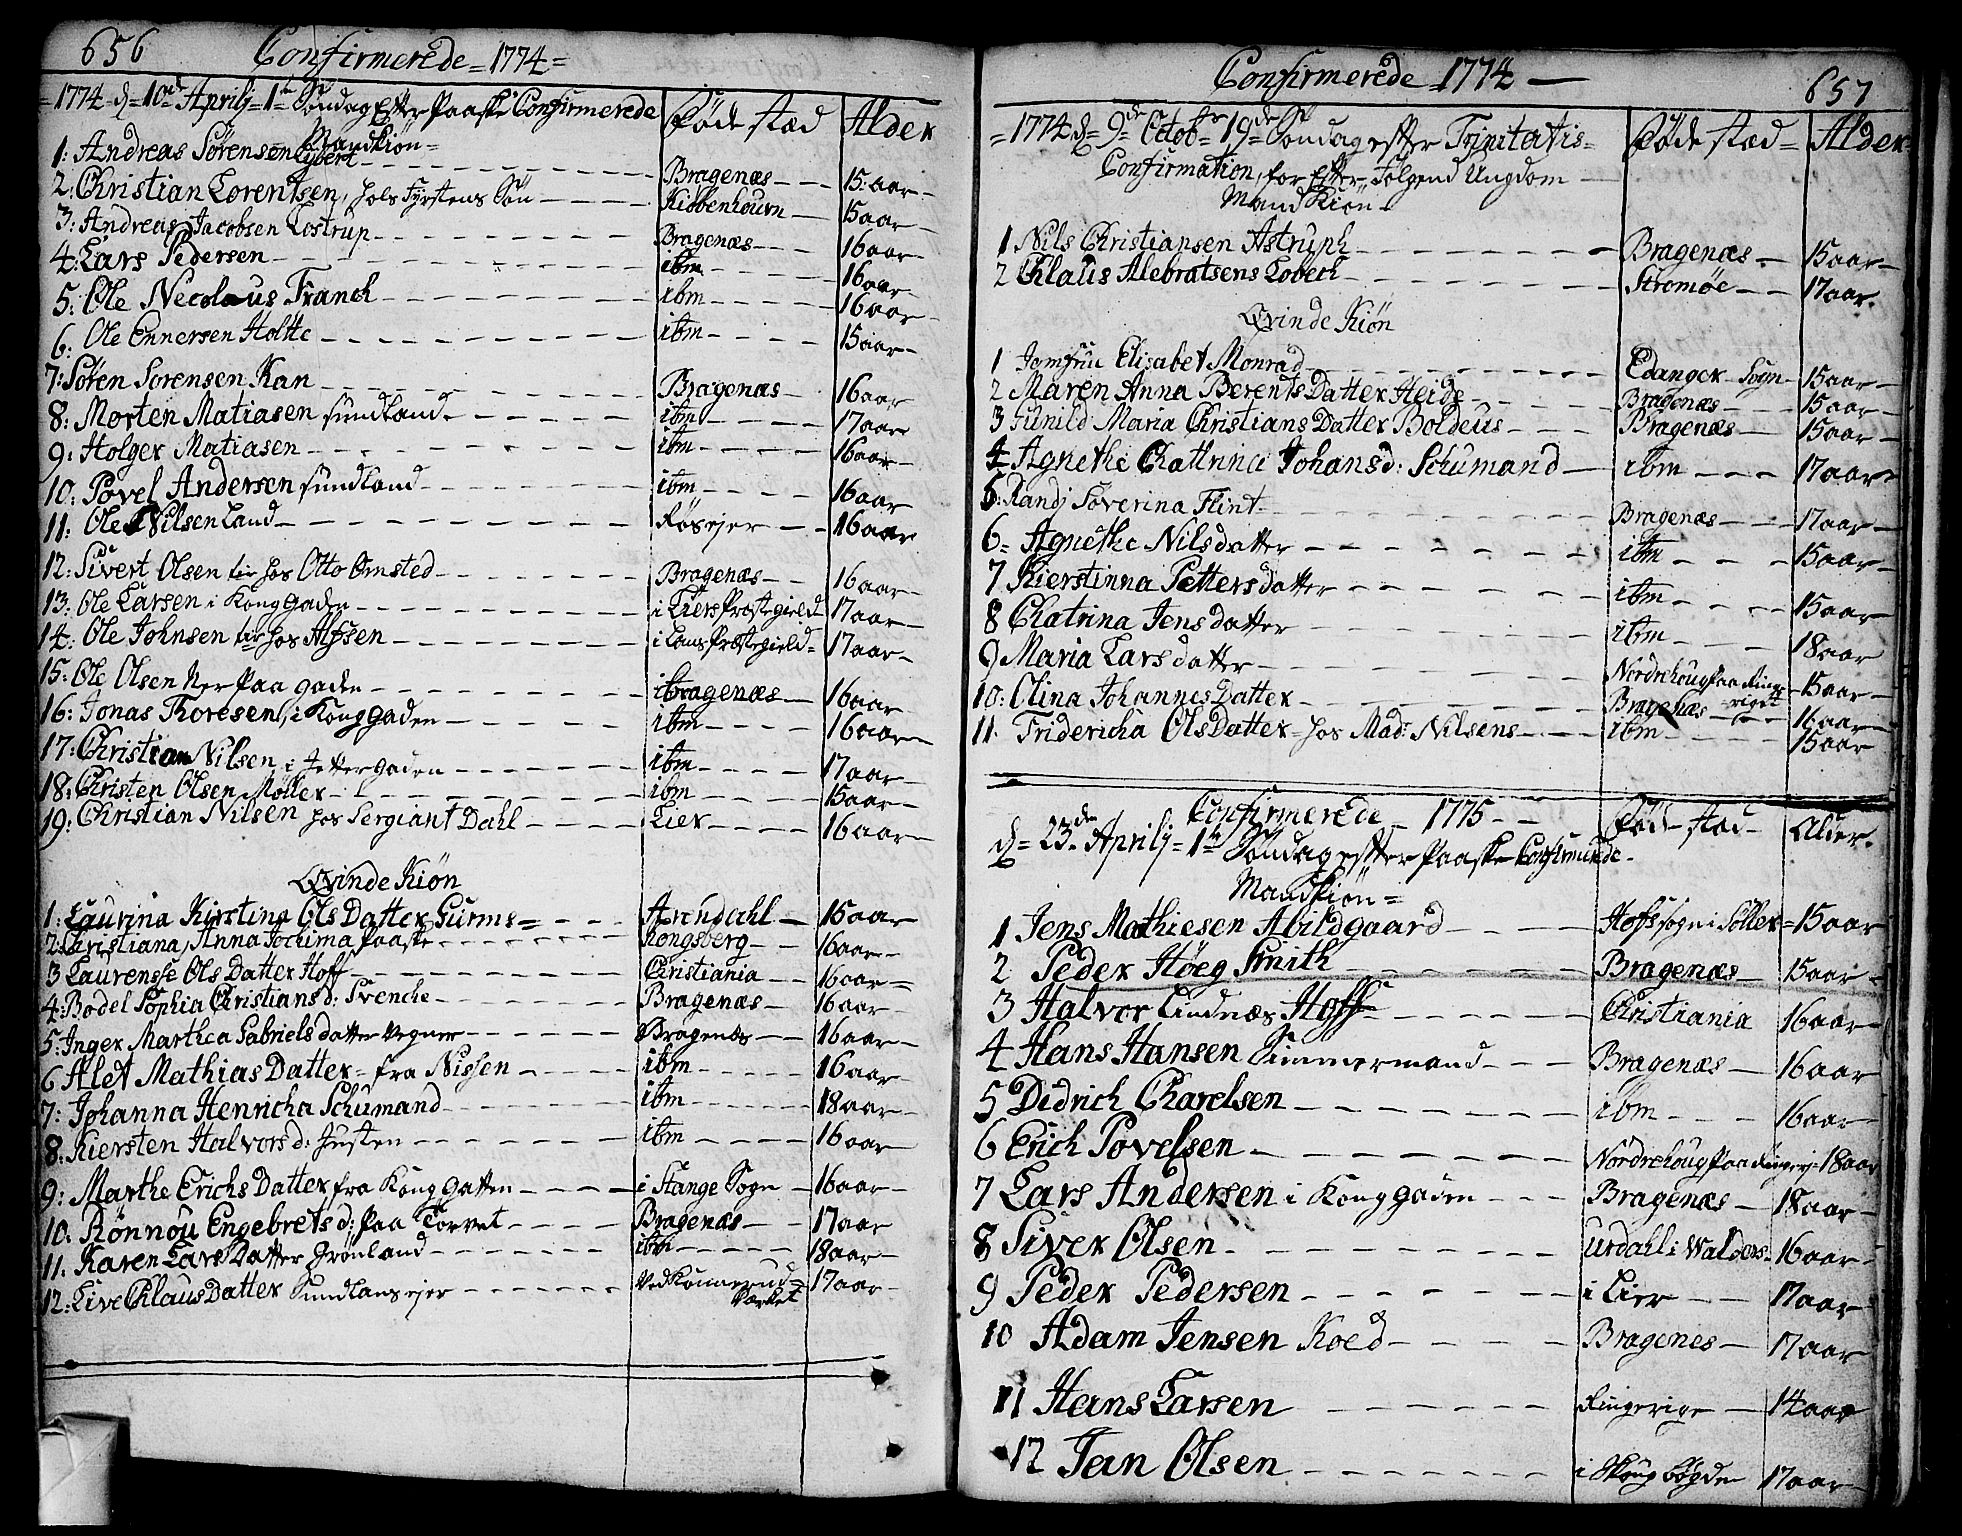 656 Confirmerede = 1774 =
= 1774 d = 10de Aprilj = 1te Söndag Efter Paaske Confirmerede Föde stæd Alder
Mandkiön =
1: Andreas Sörensen Lybert Bragenæs 15 aar
2: Christian Lorentsen, hols Fyrstens Sön Kiöbenhoun 15 aar
3: Andreas Jacobsen Lostrup Bragenæs 16 aar
4: Lars Pedersen ibm 16 aar
5: Ole Necolaus Franck ibm 16 aar
6: Ole Ennersen Holtte ibm 15 aar
7: Sören Sorensen Kan Bragenæs 16 aar
8: Morten Matiasen sundland ibm 17 aar
9: Holger Matiasen ibm 16 aar
10: Povel Andersen sundland ibm 16 aar
11: Ole Nilsen Land Rösejer 16 aar
12: Sivert Olsen hos Otto Omsted Bragenæs 16 aar
13: Ole Larsen i Kong Gaden i Liers Prostegield 17 aar
14: Ole Johnsen hos Alfsen i Lans Prostegield = 17 aar
15: Ole Olsen Ner Paa gaden Bragenæs 16 aar
16: Jonas Thoresen, i Kong Gaden ibm 16 aar
17: Christian Nilsen i Tottergaden ibm 17 aar
18: Christen Olsen Möller ibm 15 aar
19: Christian Nilsen hos Sergiant Dahl Lier 16 aar
Qvinde Kiön
1: Laurina Kirstina Ols Datter Gurms = Arendahl 15 aar
2: Christiana, Anna Jochima Paaske Kongsberg 16 aar
3 Laurense Ols Datter Hoff Christiania 16 aar =
4: Bodel Sophia Christians d: Svenche Bragenæs 16 aar
5: Inger Marthea Gabriels datter Vegner Bragenæs 16 aar
6 Alet Mathias Datter = fra Nissen ibm 16 aar
7: Johanna Henricha Schumand ibm 18 aar
8: Kiersten Halvors d: Justen ibm 16 aar
9: Marthe Erichs Datter fra Kong Gatten i Stange Sogn 16 aar
10. Rönnöu Engebrets d: paa Torvet Bragenæs 17 aar
11. Karen Lars Datter Grönland ibm 18 aar
12: Live Claus Datter Sundlans ejer Ved Konnerud = Værket 17 aar
Confirmerede 1774 657
= 1774 d = 9de Octobr = 19de Söndag effter Trinitatis = Föde stæd = Alder
Confirmation, for Efter Følgend Ungdom
Mand Kiön
1 Nils Christiansen Astruph Bragenæs 15 aar
2 Claus Alebratsens Lobech Stromöe 17 aar.
Qvinde Kiön
1 Jomfru Elisabet Monrad Edanger Sogn 15 aar
2 Maren Anna Berents Datter Heide Bragenæs 15 aar
3 Gunild Maria Christians Datter Boldeus Bragenæs 15 aar
4 Agnethe Cattrina Johans d: Schumand ibm 17 aar
5: Randj Soverina Flint Bragenæs 17 aar
6 = Agnethe Nilsdatter ibm 15 aar
7 Kierstinna Pettersdatter ibm 15 aar
8 Chatrina Jensdatter ibm 18 aar
9 Maria Larsdatter Nordrehoug paa Ringeriget 15 aar
10: Olina Johannes Datter Bragenæs 16 aar
11. Fridericha Ols Datter hos Mad: Nilsens ibm 15 aar
Confirmerede 1775 Föde stad Alder.
d = 23de Aprilj = 1te Söndag effter Paaske Confirmerede
Mandkiön =
1 Jens Mathiesen Abildgaard Hofs sogn i Soller = 15 aar
2 Peder Höeg Smith Bragenæs 15 aar
3 Halvor Lindnæs Hoff Christiania 16 aar
4 Hans Hansen Timmermand Bragenæs 16 aar
5 Didrich Charelsen ibm 16 aar
6 Erich Povelsen Nordrehoug paa Ringerj = 18 aar
7 Lars Andersen i Kong gaden Bragenæs 18 aar
8 Siver Olsen Urdahl i Walders 16 aar
9 Peder Pedersen i Lier 17 aar
10 Adam Jensen Koed Bragenes 17 aar
11 Hans Larsen Ringerige 14 aar
12 Jan Olsen i Skoug bögden 17 aar